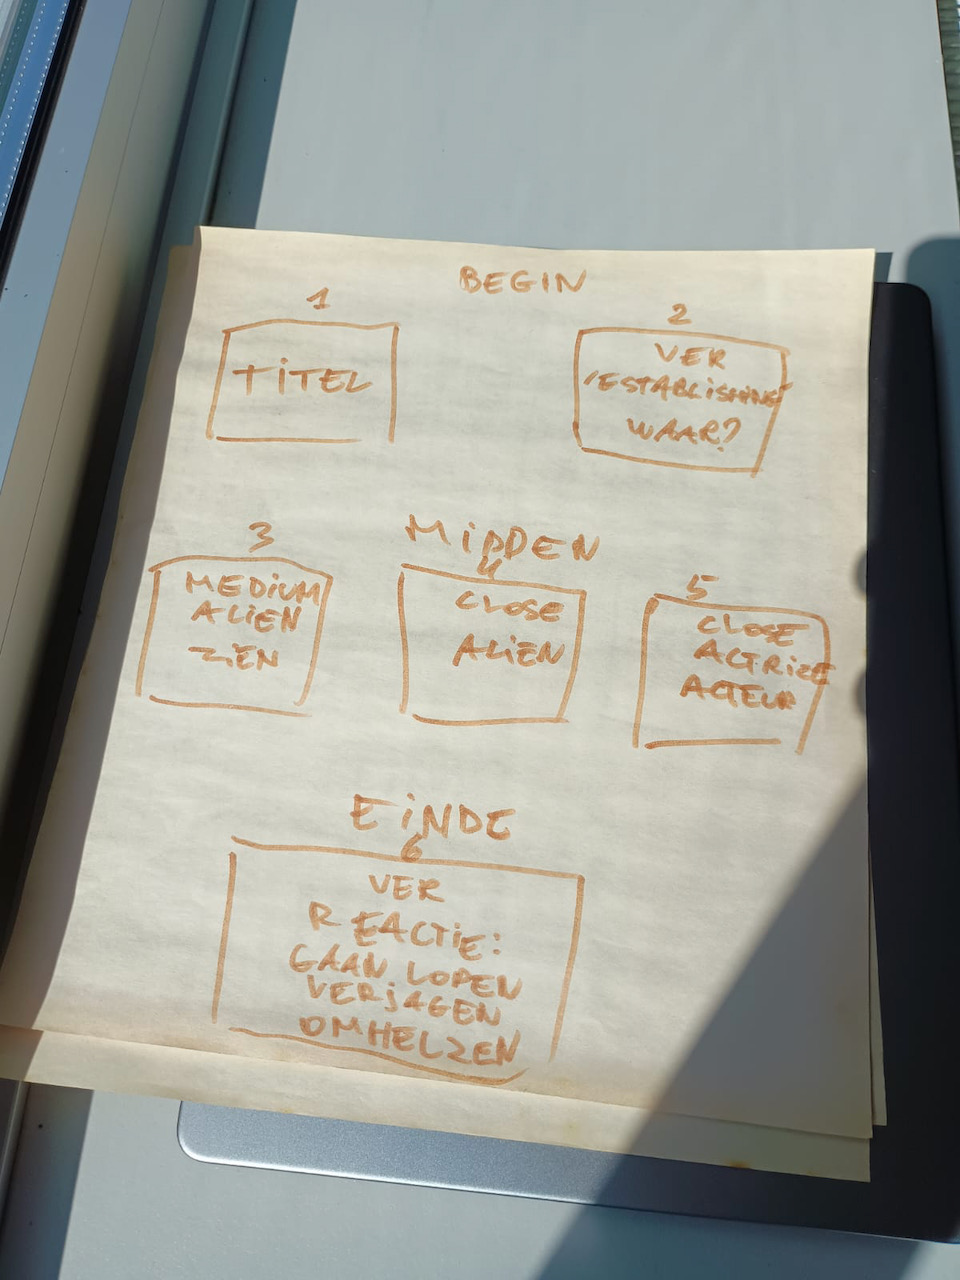 BEGIN
1
TITEL
2
VER
'ESTABLISHING'
WAAR?
MIDDEN
3
MEDIUM
ALIEN
ZIEN
4
CLOSE
ALIEN
5
CLOSE
ACTRICE
ACTEUR
EINDE
6
VER
REACTIE:
GAAN LOPEN
VERJAGEN
OMHELZEN